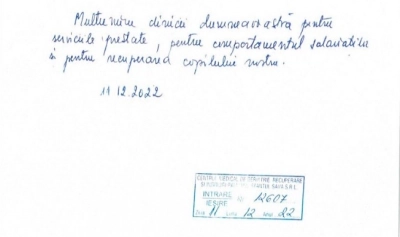 Multumim clinicii dumneavoastră pentru
serviciile prestate, pentru comportamentul salariatilor
si pentru recuperarea copilului nostru.
11.12.2022
CENTRUL MEDICAL DE RECUPERARE
INTRARE 12607
IESIRE
Ziua 11 Luna 12 Anul 22